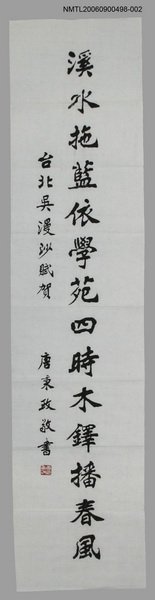 NMTL20060900498-002
溪水拖藍依學苑四時木鐸播春風
台北吳漫沙賦賀
唐東政敬書